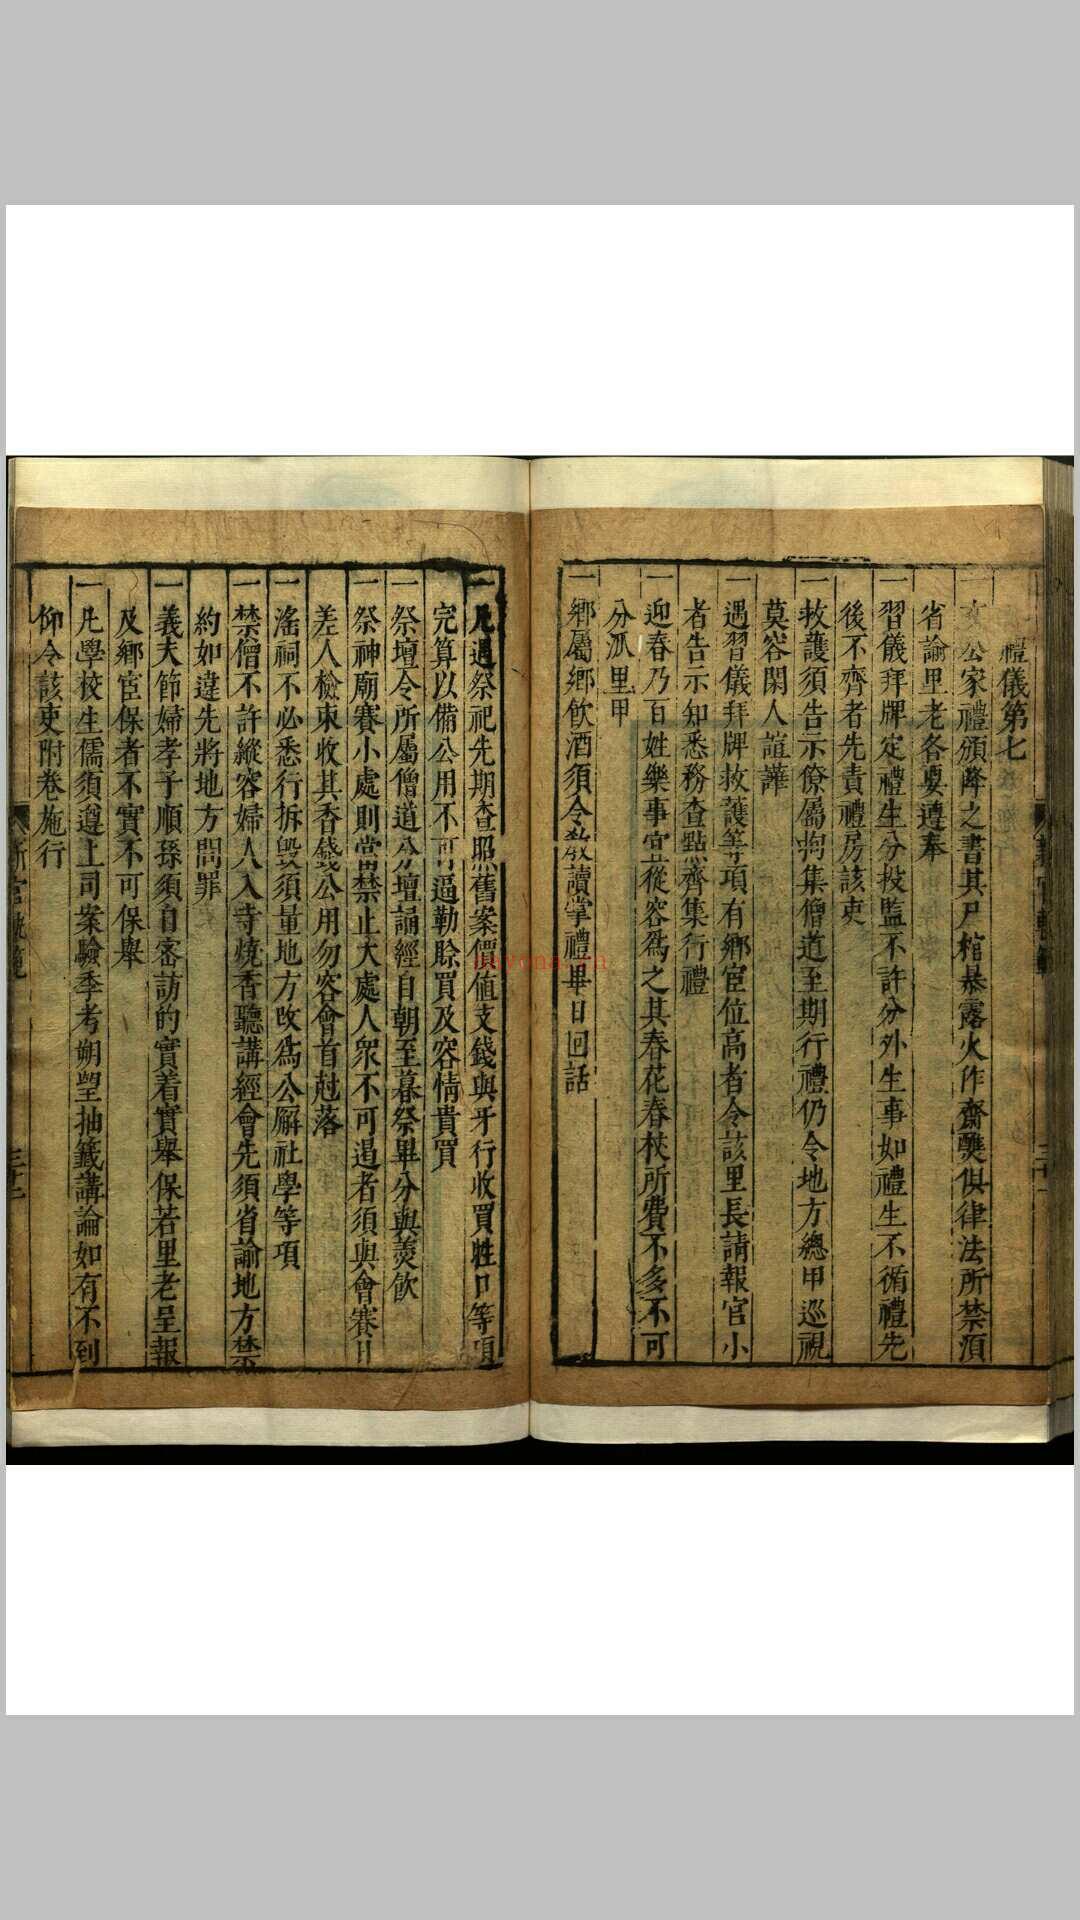 禮儀第七
一文公家禮頒降之書其尸棺暴露火作齋襲俱律法所禁須
省諭里老各要遵奉
一習儀拜牌定禮生分投監不許分外生事如禮生不循禮先
後不齊者先責禮房該吏
一救護須告示僚屬拘集僧道至期行禮仍令地方總甲巡視
莫容閑人諠譁
一遇習儀拜牌救護等項有鄉宦位高者令該里長請報官小
者告示知悉務查點齊集行禮
一迎春乃百姓樂事官從容爲之其春花春杖所費不多不可
分派里甲
一鄉屬鄉飲酒須令教讀掌禮畢日回話
一凡遇祭祀先期查照舊案價值支錢與牙行收買牲口等項
完算以備公用不可逼勒賒買及容情貴買
一祭壇令所屬僧道分壇誦經自朝至暮祭畢分與羮飲
一祭神廟賽小處則當禁止大處人衆不可遏者須與會賽日
差人檢束收其香錢公用勿容會首尅落
一滛祠不必悉行拆毀須量地方改爲公廨社學等項
一禁僧不許縱容婦人入寺燒香聽講經會先須省諭地方禁
約如違先將地方問罪
一義夫節婦孝子順孫須自密訪的實着實舉保若里老呈報
及鄉宦保者不實不可保舉
一凡學校生儒須遵上司案驗季考朔望抽籤講論如有不到
仰令該吏附卷施行
新官軌範
三十二
buyona.cn